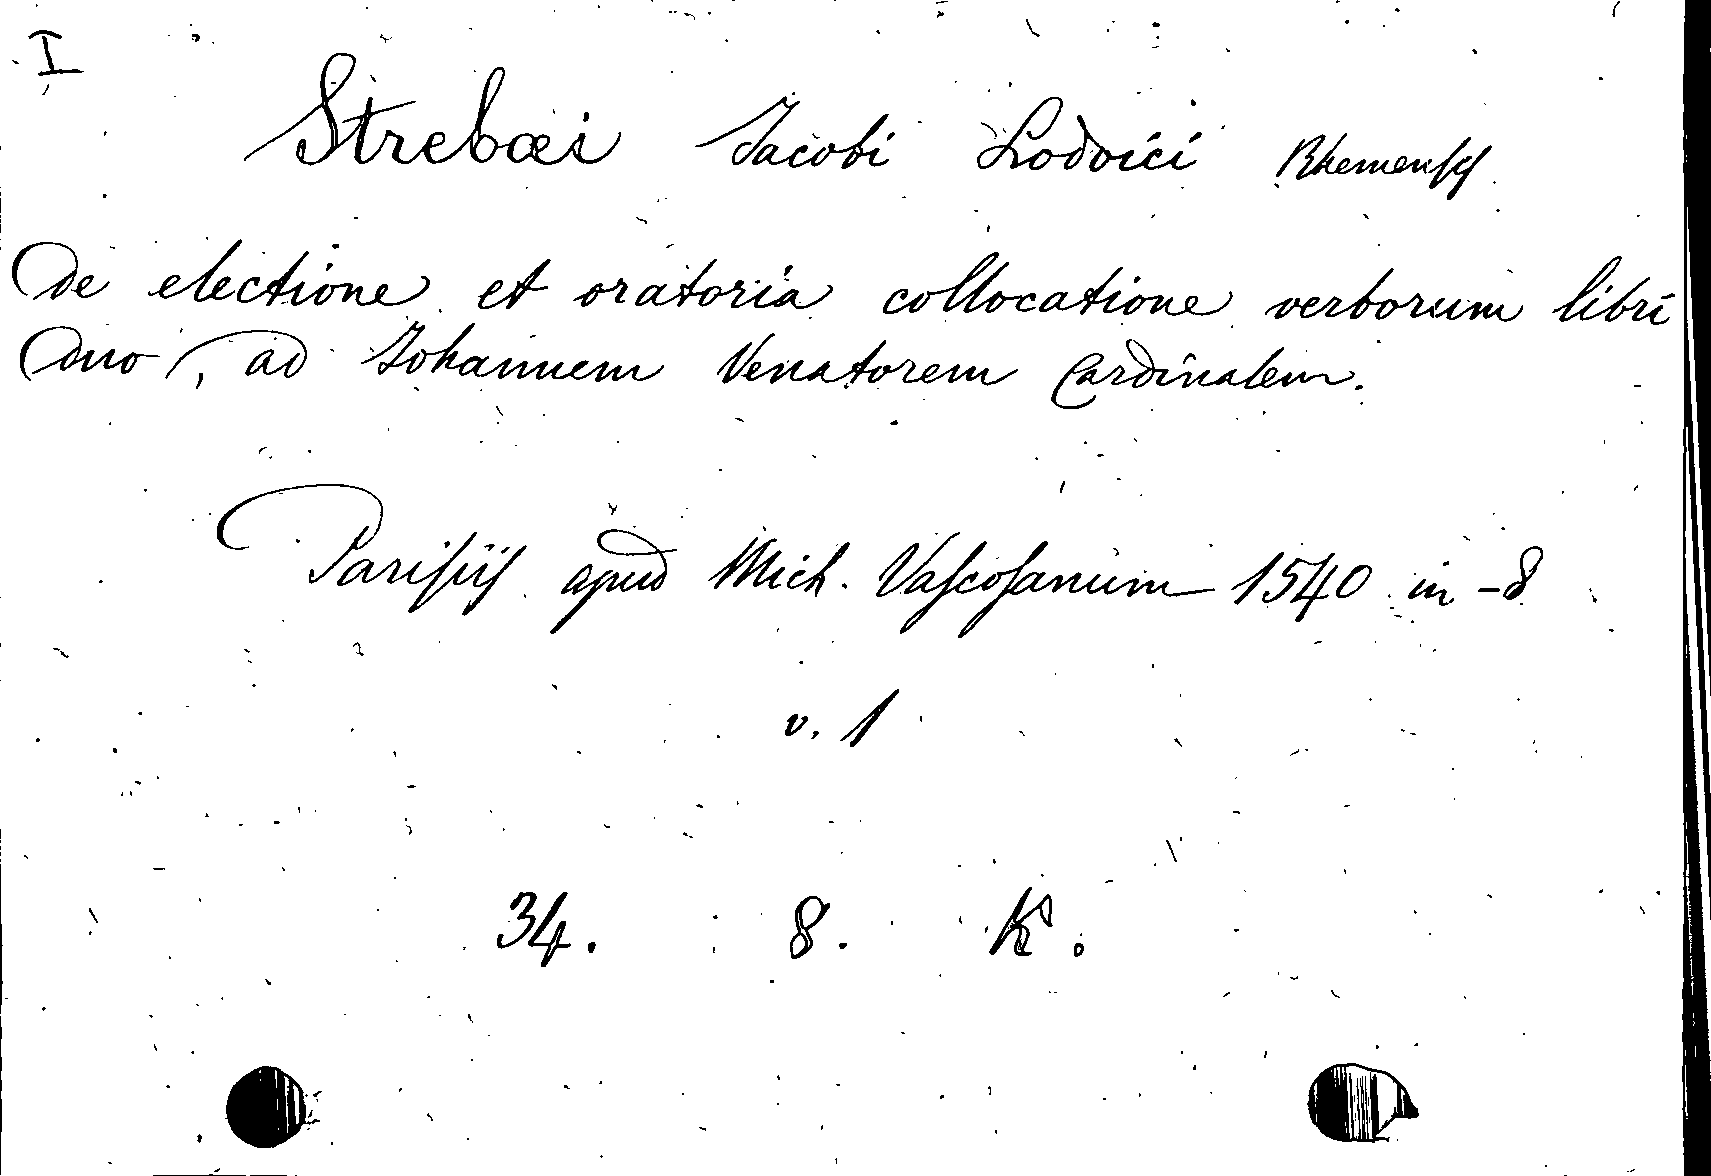 I
Strebæi Jacobi Lodoici Rhemensis
De electione et oratoria collocatione verborum libri
duo, ad Johannem Venatorem Cardinalem.
Parisiis apud Mich. Vascosanum 1540 in-8
v. 1
34. 8. K.